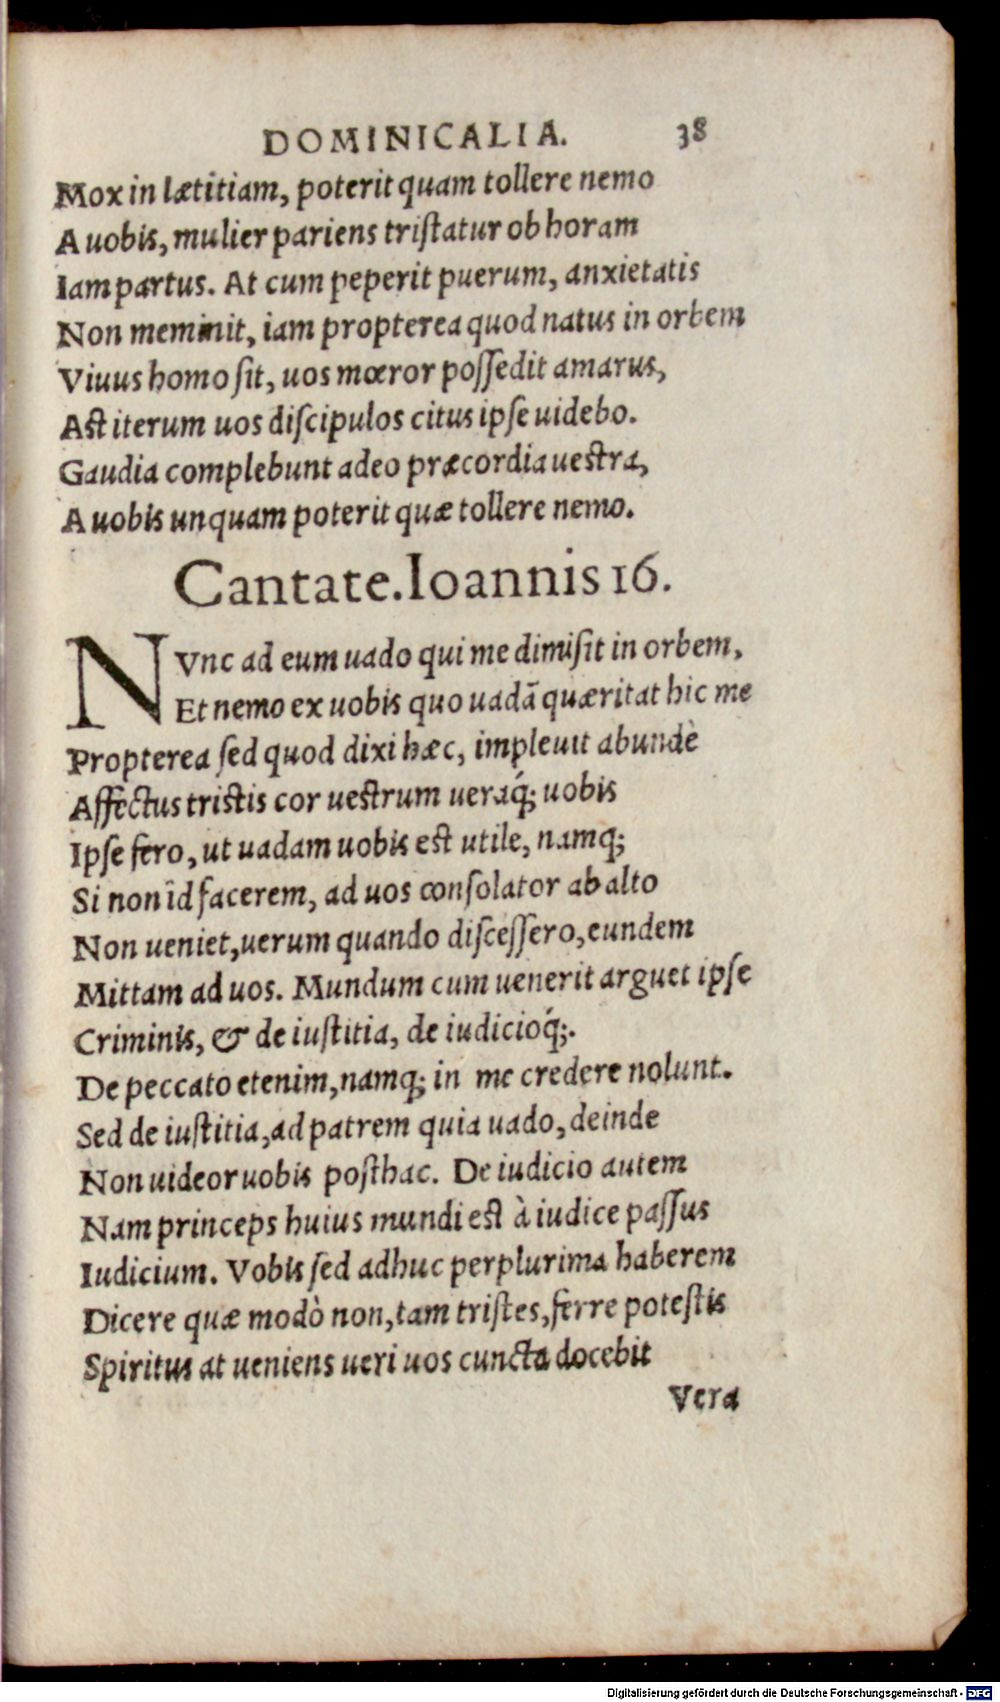 DOMINICALIA. 38
Mox in lætitiam, poterit quam tollere nemo
A uobis, mulier pariens triſtatur ob horam
Iam partus. At cum peperit puerum, anxietatis
Non meminit, iam propterea quod natus in orbem
Viuus homo ſit, uos mœror poſſedit amarus,
Aſt iterum uos diſcipulos citus ipſe uidebo.
Gaudia complebunt adeo præcordia ueſtra,
A uobis unquam poterit quæ tollere nemo.
Cantate. Ioannis 16.
NVnc ad eum uado qui me dimiſit in orbem,
Et nemo ex uobis quo uadã quæritat hic me
Propterea ſed quod dixi hæc, impleuit abundè
Affectus triſtis cor ueſtrum ueraq́; uobis
Ipſe fero, ut uadam uobis eſt utile, namq;
Si non id facerem, ad uos conſolator ab alto
Non ueniet, uerum quando diſceſſero, eundem
Mittam ad uos. Mundum cum uenerit arguet ipſe
Criminis, & de iuſtitia, de iudicioq́;.
De peccato etenim, namq; in me credere nolunt.
Sed de iuſtitia, ad patrem quia uado, deinde
Non uideor uobis poſthac. De iudicio autem
Nam princeps huius mundi eſt à iudice paſſus
Iudicium. Vobis ſed adhuc perplurima haberem
Dicere quæ modò non, tam triſtes, ferre poteſtis
Spiritus at ueniens ueri uos cuncta docebit
Vera
Digitalisierung gefördert durch die Deutsche Forschungsgemeinschaft - DFG